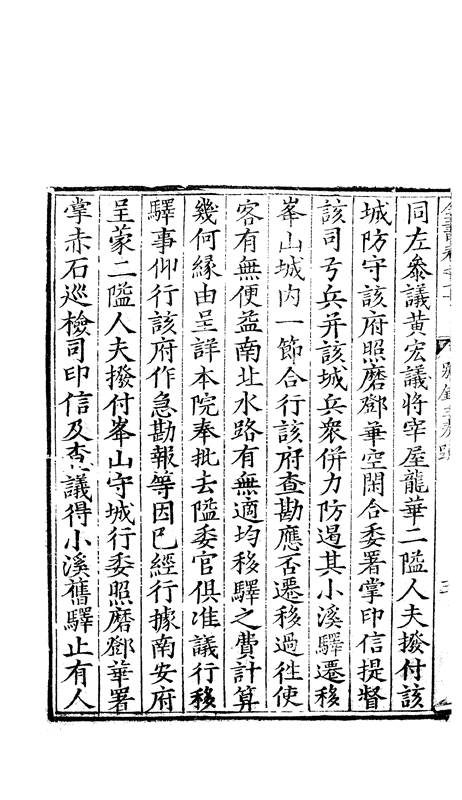 同左參議黃宏議將宰屋龍華二隘人夫撥付該
城防守該府照磨鄧華空閑合委署掌印信提督
該司弓兵并該城兵衆併力防遏其小溪驛遷移
峯山城内一節合行該府查勘應否遷移過徃使
客有無便益南北水路有無適均移驛之費計算
幾何緣由呈詳本院奉批去隘委官俱准議行移
驛事仰行該府作急勘報等因已經行據南安府
呈蒙二隘人夫撥付峯山守城行委照磨鄧華署
掌赤石巡檢司印信及查議得小溪舊驛止有人